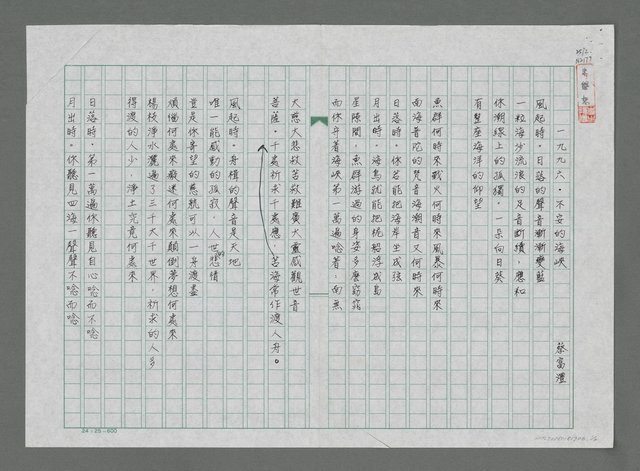 一九九六·不安的海峽
蔡富澧
風起時，日落的聲音漸漸變藍
一粒海沙流浪的足音斷續，應和
你潮線上的孤獨，一朵向日葵
有整座海洋的仰望
魚群何時來戰火何時來風暴何時來
面海普陀的梵音海潮音又何時來
日落時，你若能把海岸坐成弦
月出時，海鳥就能把桅船浮成島
星隱間，魚群游過的身姿多麼窈窕
而你斗着海峽第一萬遍唸著，南無
大慈大悲救苦救難廣大靈感觀世音
菩薩，千處祈求千處應，苦海常作渡人舟。
風起時，舟楫的聲音是天地
唯一能感動的孤寂，人世的悲情
豈是你奢望的慈航可以一身渡盡
煩惱何處來癡迷何處來顛倒夢想何處來
楊枝淨水灑遍了三千大千世界，祈求的人多
得渡的人少，淨土究竟何處來
日落時，第一萬遍你聽見自心唸而不唸
月出時，你聽見四海一聲聲不唸而唸
24×25=600